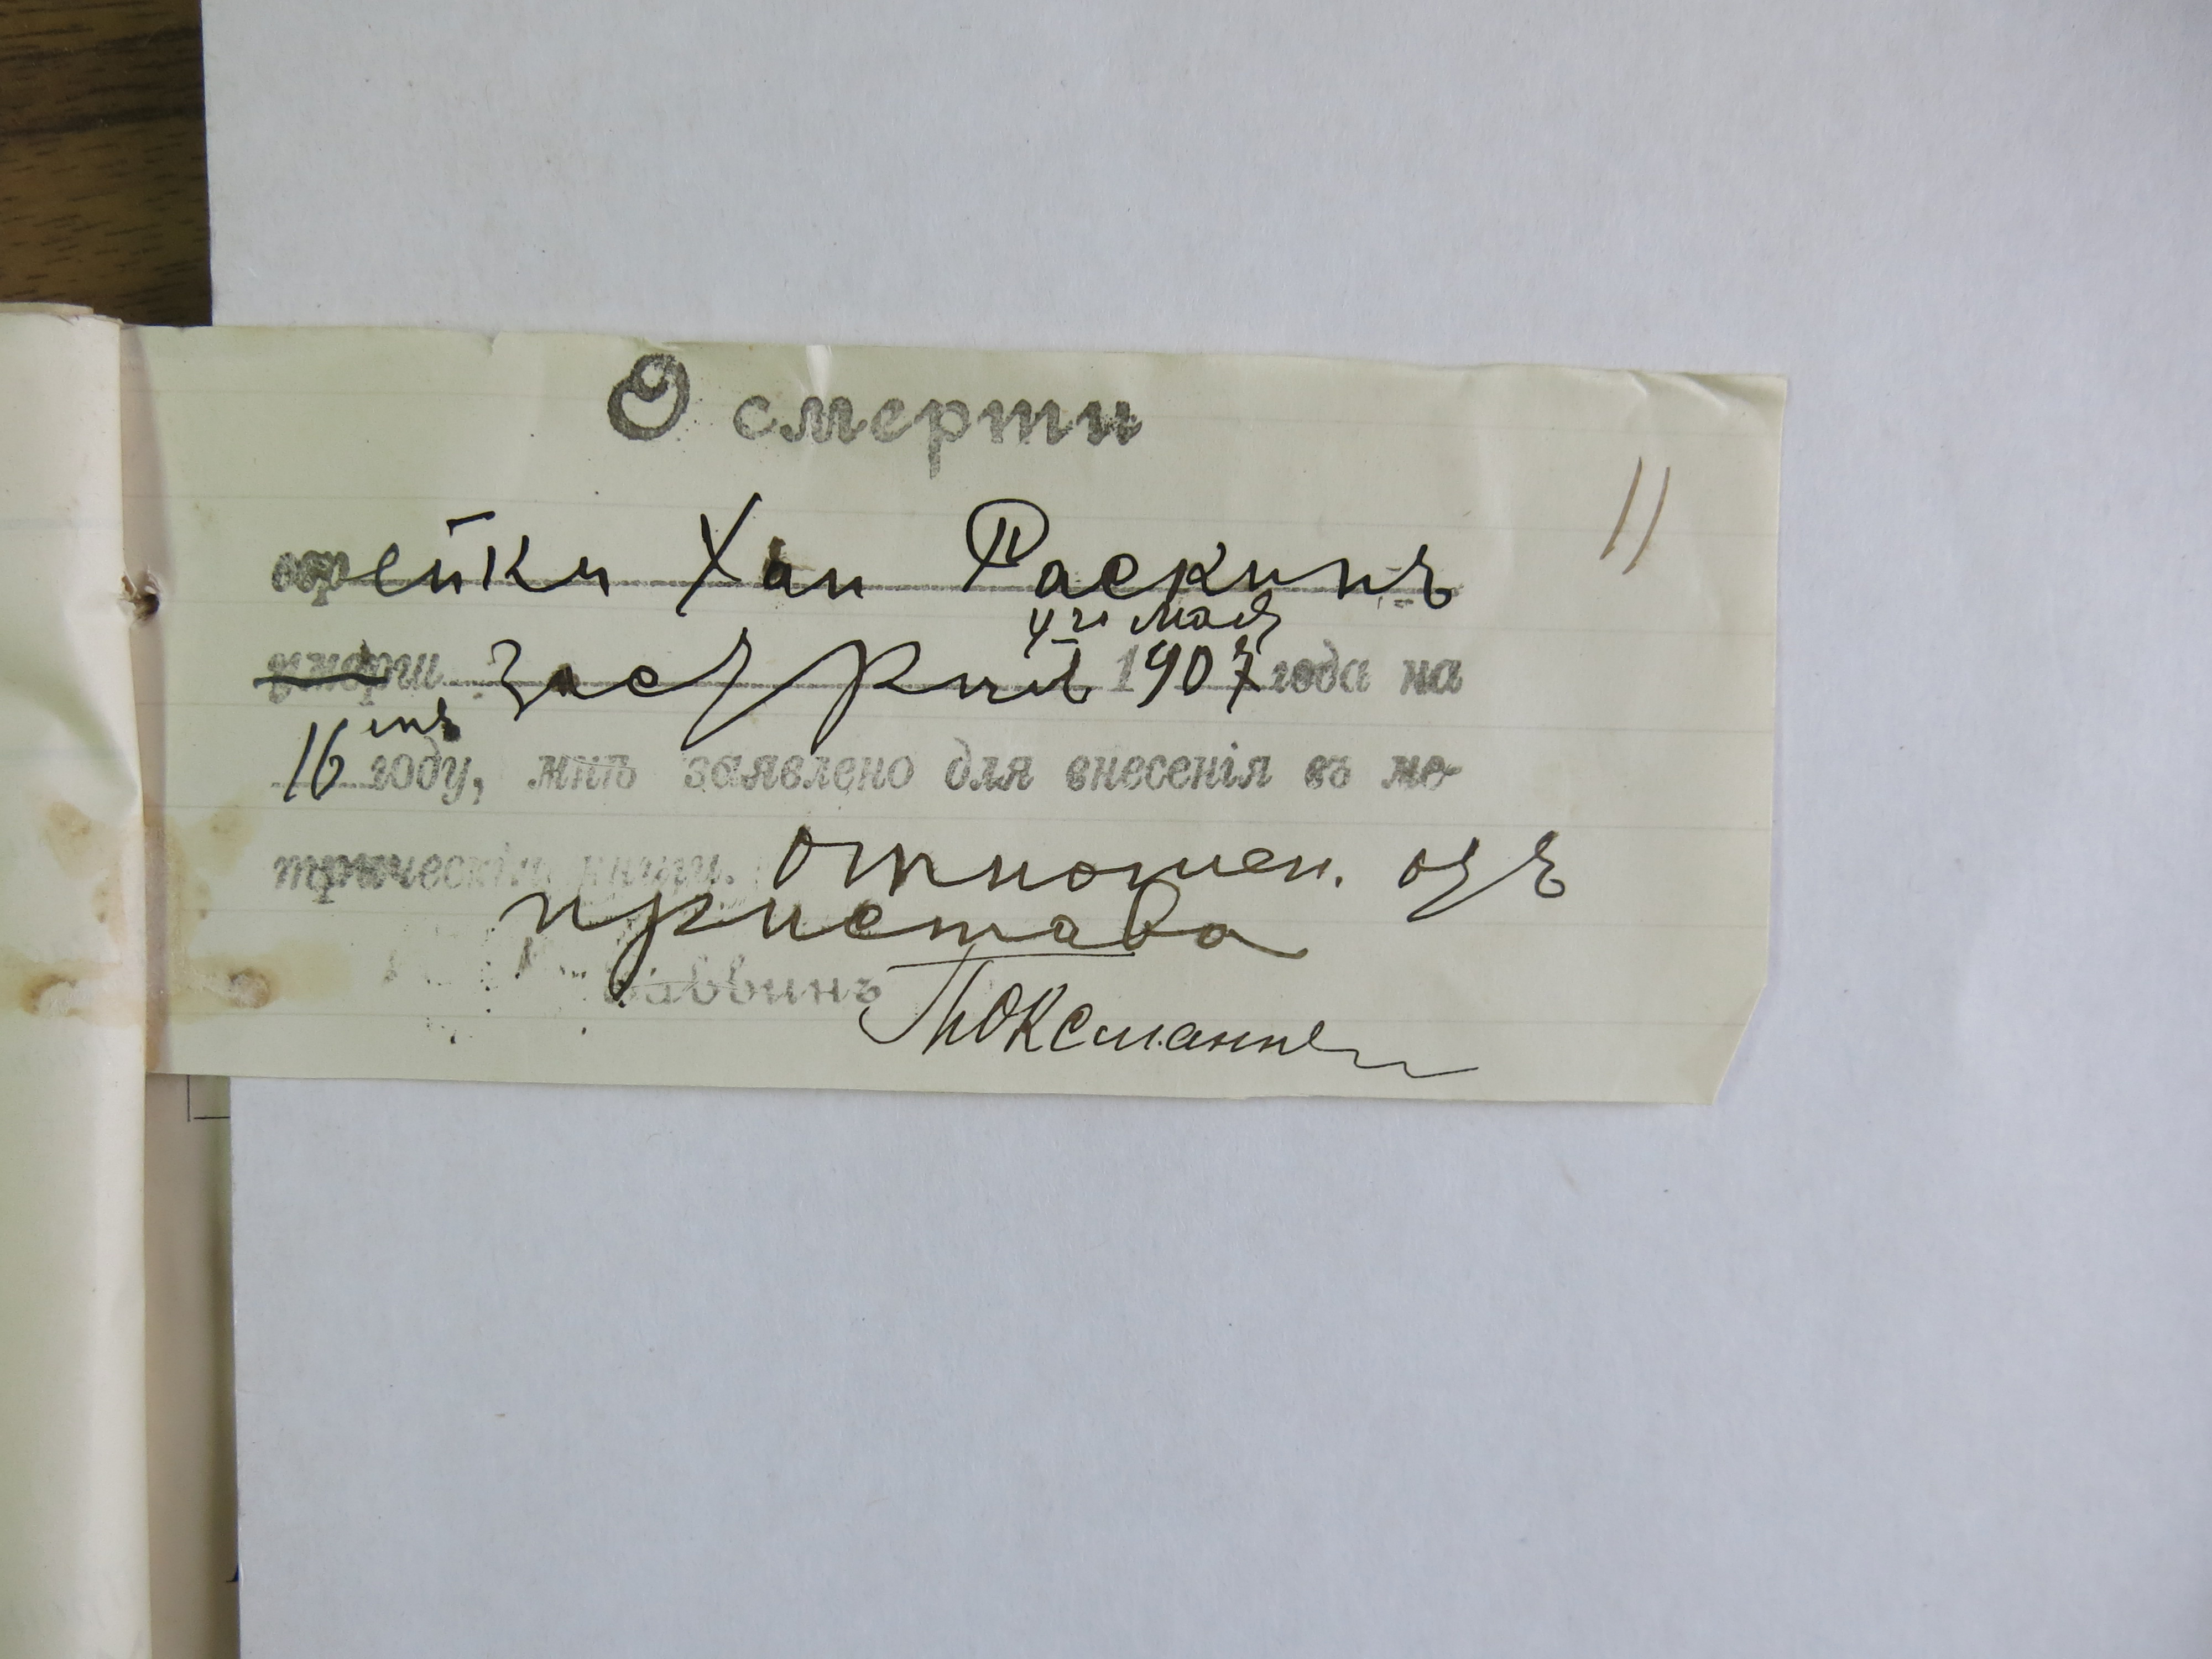 О смерти
11
еврейки Хаи Раскинъ
4го мая
умерш 1907 года на
16 году, мнѣ заявлено для внесенія въ ме-
трическія книги. отношен.
пристава
Раввинъ